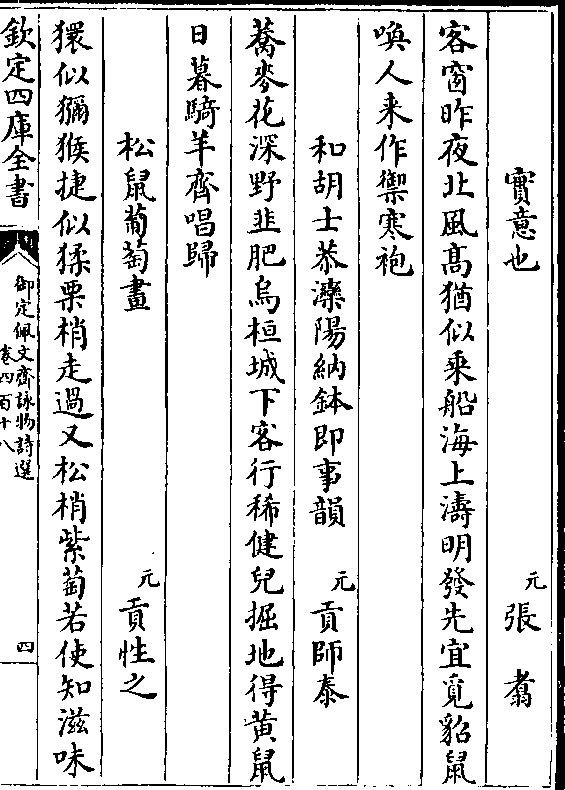 實意也　元　張翥
客窗昨夜北風髙猶似乘船海上濤明發先宜覓貂鼠
喚人来作禦寒袍
和胡士恭灤陽納鉢即事韻　元　貢師泰
蕎麥花深野韭肥烏桓城下客行稀健兒掘地得黄鼠
日暮騎羊齊唱歸
松鼠葡萄畫　元　貢性之
獧似獼猴捷似猱栗梢走過又松梢紫萄若使知滋味
欽定四庫全書
御定佩文齋詠物詩選
卷四百十八
四